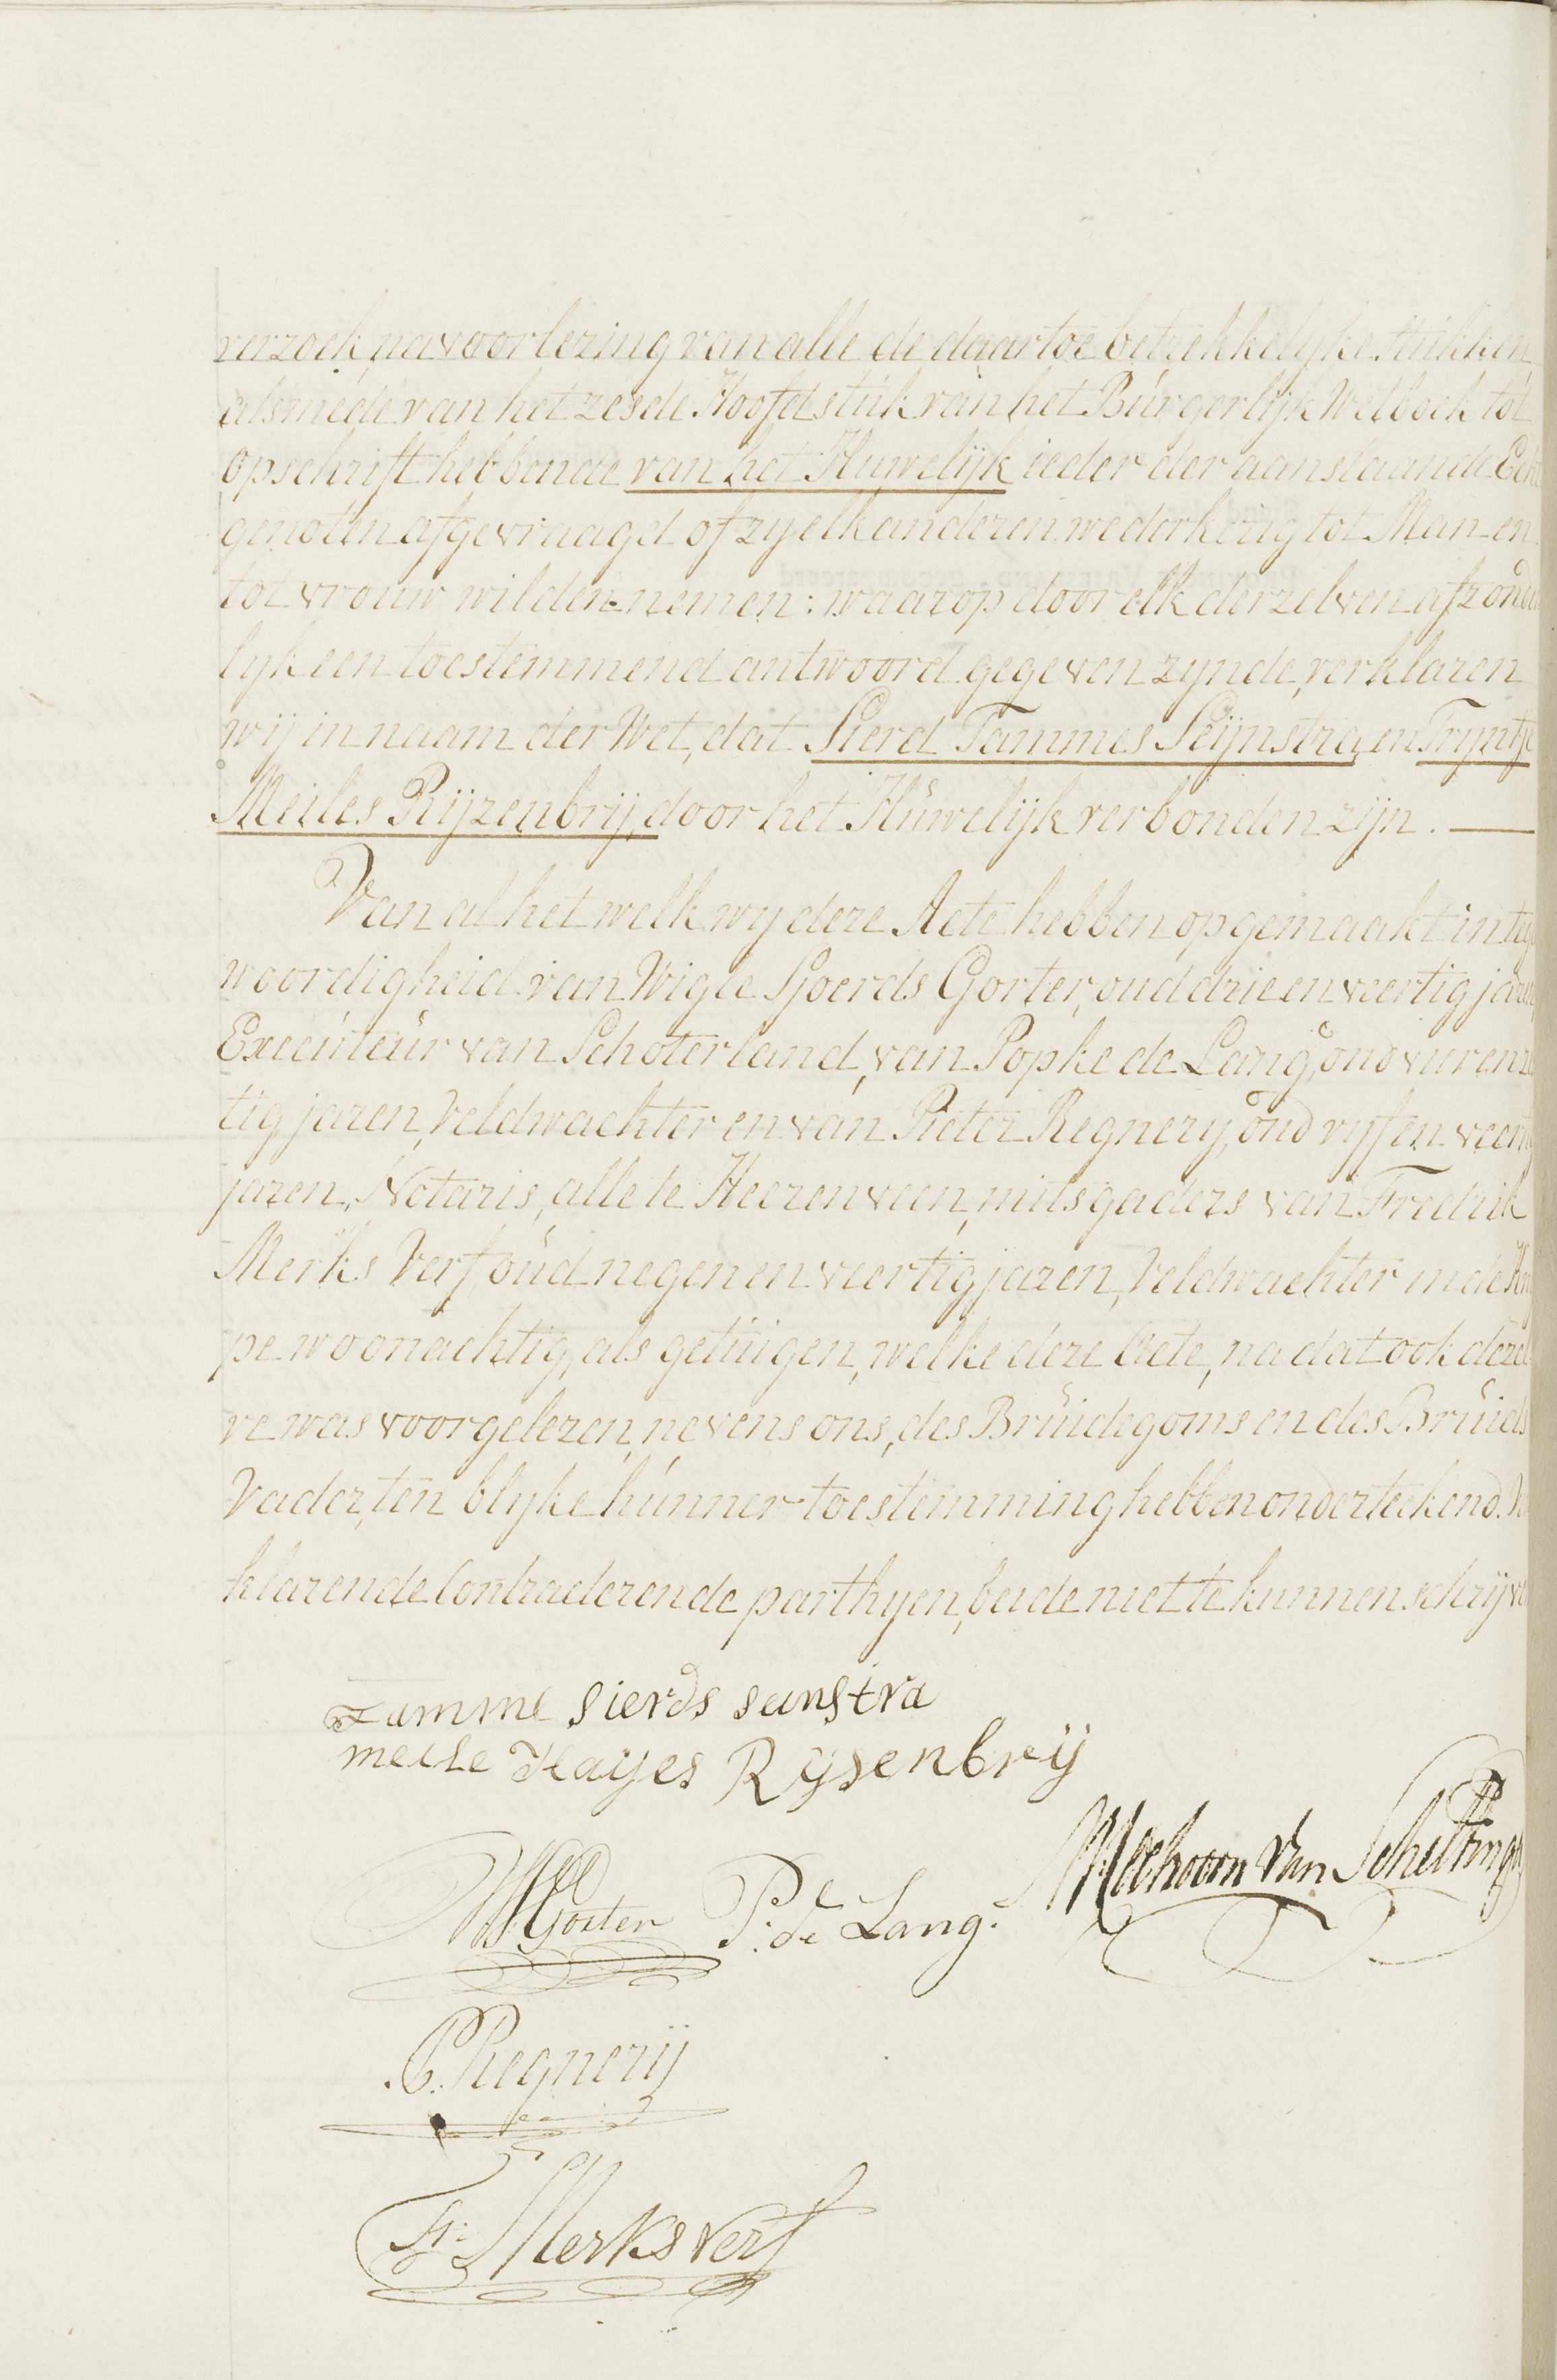 verzoek, na voorlezing van alle de daartoe betrekkelijke stukken,
alsmede van het zesde Hoofdstuk van het Burgerlijk Wetboek tot
opschrift hebbende van het Huwelijk ieder der aanstaande Echt
genoten afgevraagd of zy elkanderen wederkerig tot Man en
tot vrouw wilden nemen: waarop door elk derzelven afzonder
lyk een toestemmend antwoord gegeven zynde, verklaren
wij in naam der Wet, dat Sierd Tammes Seijnstra, en Trijntje
Meiles Rijzenbrij, door het Huwelijk verbonden zijn. —
Van al het welk wy deze Acte hebben opgemaakt in teg
woordigheid van Wigle Sjoerds Gorter, oud drie en veertig jaren,
Executeur van Schoterland, van Popke de Lang, oud vier en
tig jaren, Veldwachter en van Pieter Regnery, oud vyf en veert
jaren, Notaris, alle te Heerenveen, mitsgaders van Fredrik
Merks Verf, oud negen en veertig jaren, Veldwachter in de Kn
pe woonachtig, als getuigen, welke deze Acte, na dat ook dezel
ve was voorgelezen, nevens ons, des Bruidegoms en des Bruids
Vader, ten blyke hunner toestemming hebben onderteekend. Ver
klarende Contracterende parthyen, beide niet te kunnen schryve
Tamme Sierds seinstra
meile Hayes Rysenbrij
WSGorter P. de Lang. Mcehoorn van Scheltinga
P. Regnerij
Fr: Merks Verf